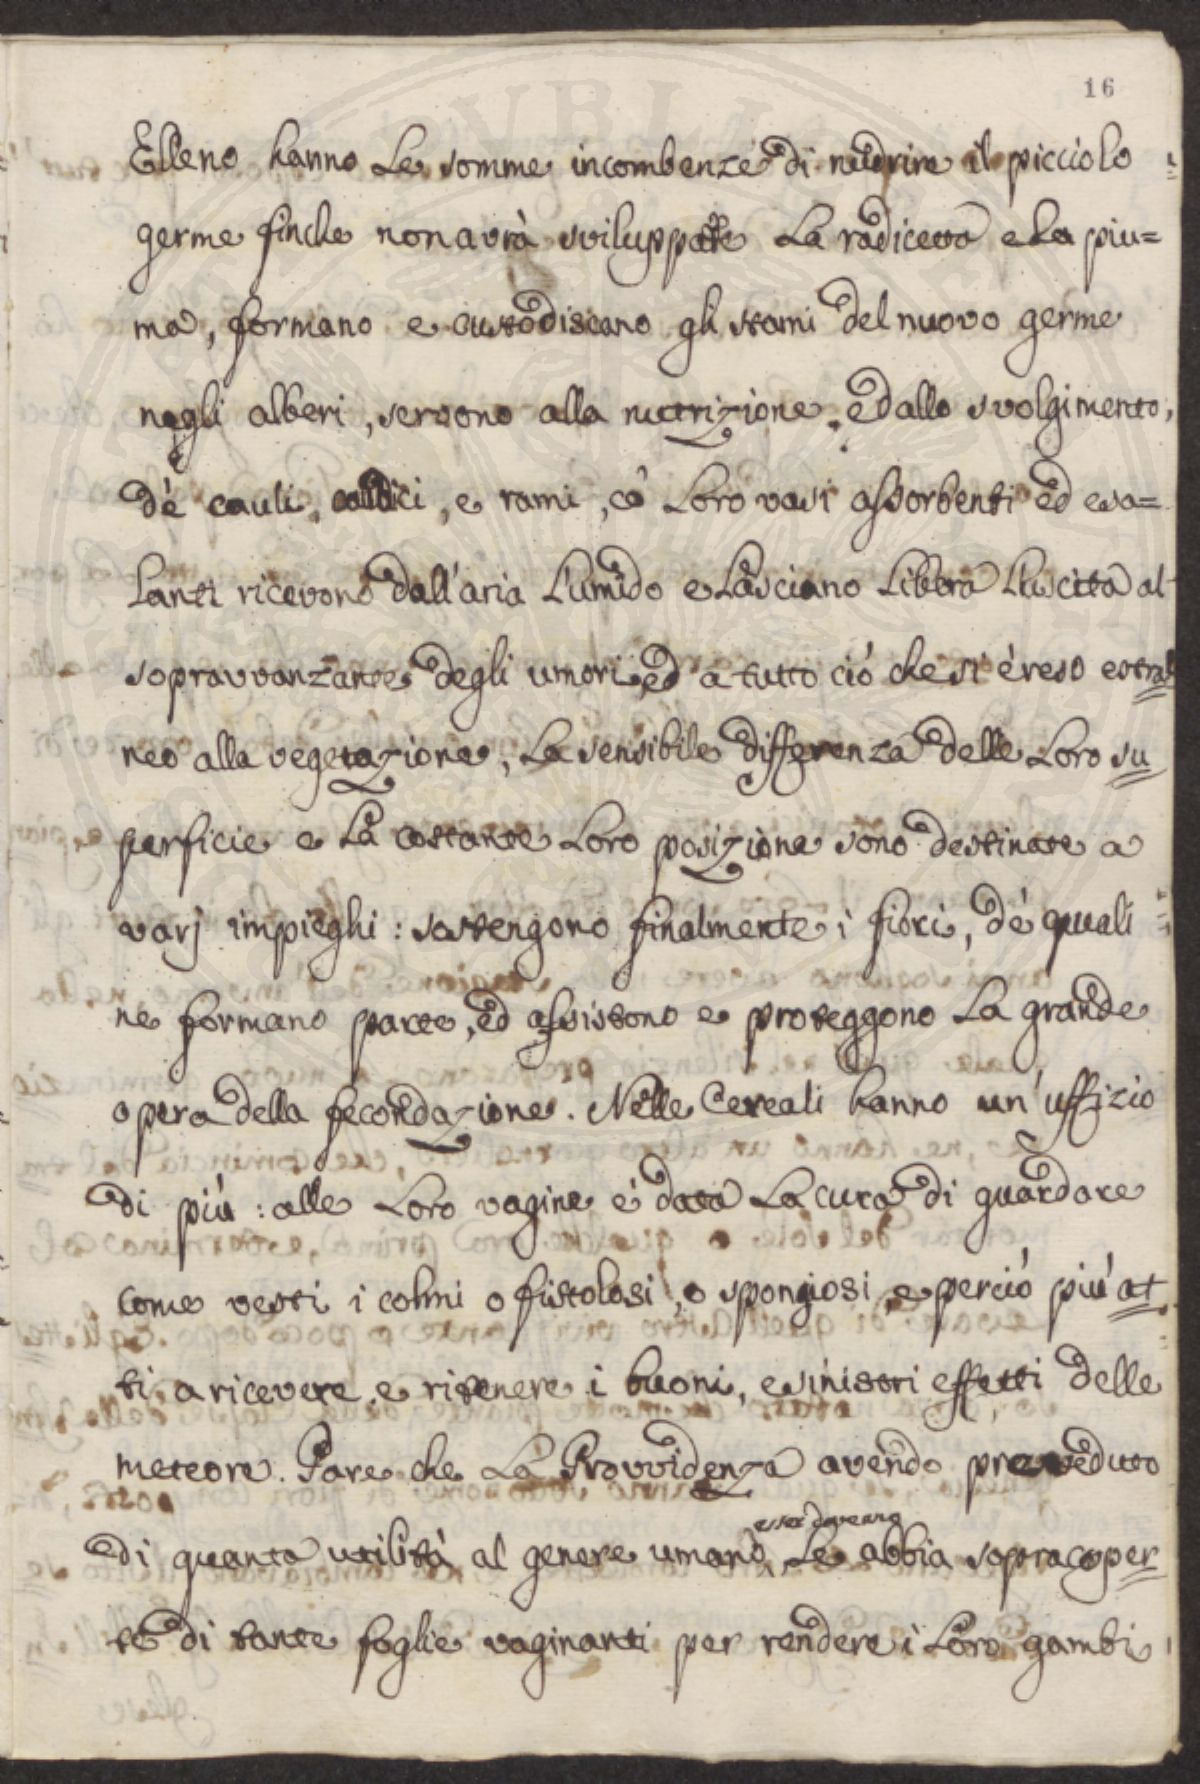 16
Elleno hanno Le somme incombenze di nudrire il picciolo
germe finche non avrà sviluppatte La radicetta e La piu=
ma, formano e custodiscano gli stami del nuovo germe
negli alberi, servono alla nutrizione, ed allo svolgimento,
de' cauli, caudici, e rami, co' Loro vasi assorbenti ed esa=
lanti ricevono dall'aria L'umido e Lasciano Libera L'uscita al
sopravvanzante degli umori, ed a tutto ciò che si è reso estra=
neo alla vegetazione, La sensibile differenza delle Loro su
perficie e La costante Loro posizione sono destinate a
varj impieghi: sostengono finalmente i fiori, de' quali
ne formano parte, ed assistono e proteggono La grande
opera della fecondazione. Nelle Cereali hanno un'uffizio
di più: alle Loro vagine è data La cura di guardare
come vesti i colmi o fistolosi, o spongiosi, e perciò più at
ti, a ricevere e ritenere i buoni, e sinistri effetti delle
meteore. Pare che La Provvidenza avendo preveduto
esser doveano
di quanta utilità al genere umano, Le abbia sopracoper
te di tante foglie vaginanti per rendere i Loro gambi